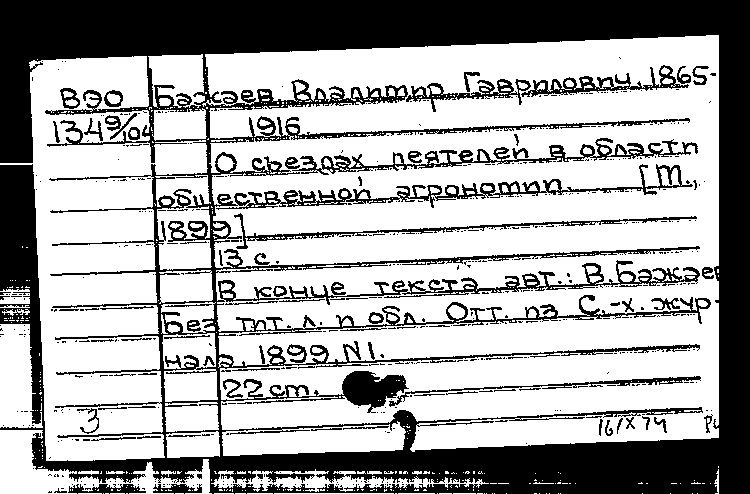 ВЭО Бажаев, Владимир Гаврилович. 1865-
1349/104 1916.
О съездах деятелей в области
общественной агрономии. [М.,
1899].
13 с.
В конце текста авт.: В. Бажаев
Без тит. л. и обл. Отт. из С.-х. жур-
нала. 1899. N1.
22 cm.
3
16/X 74